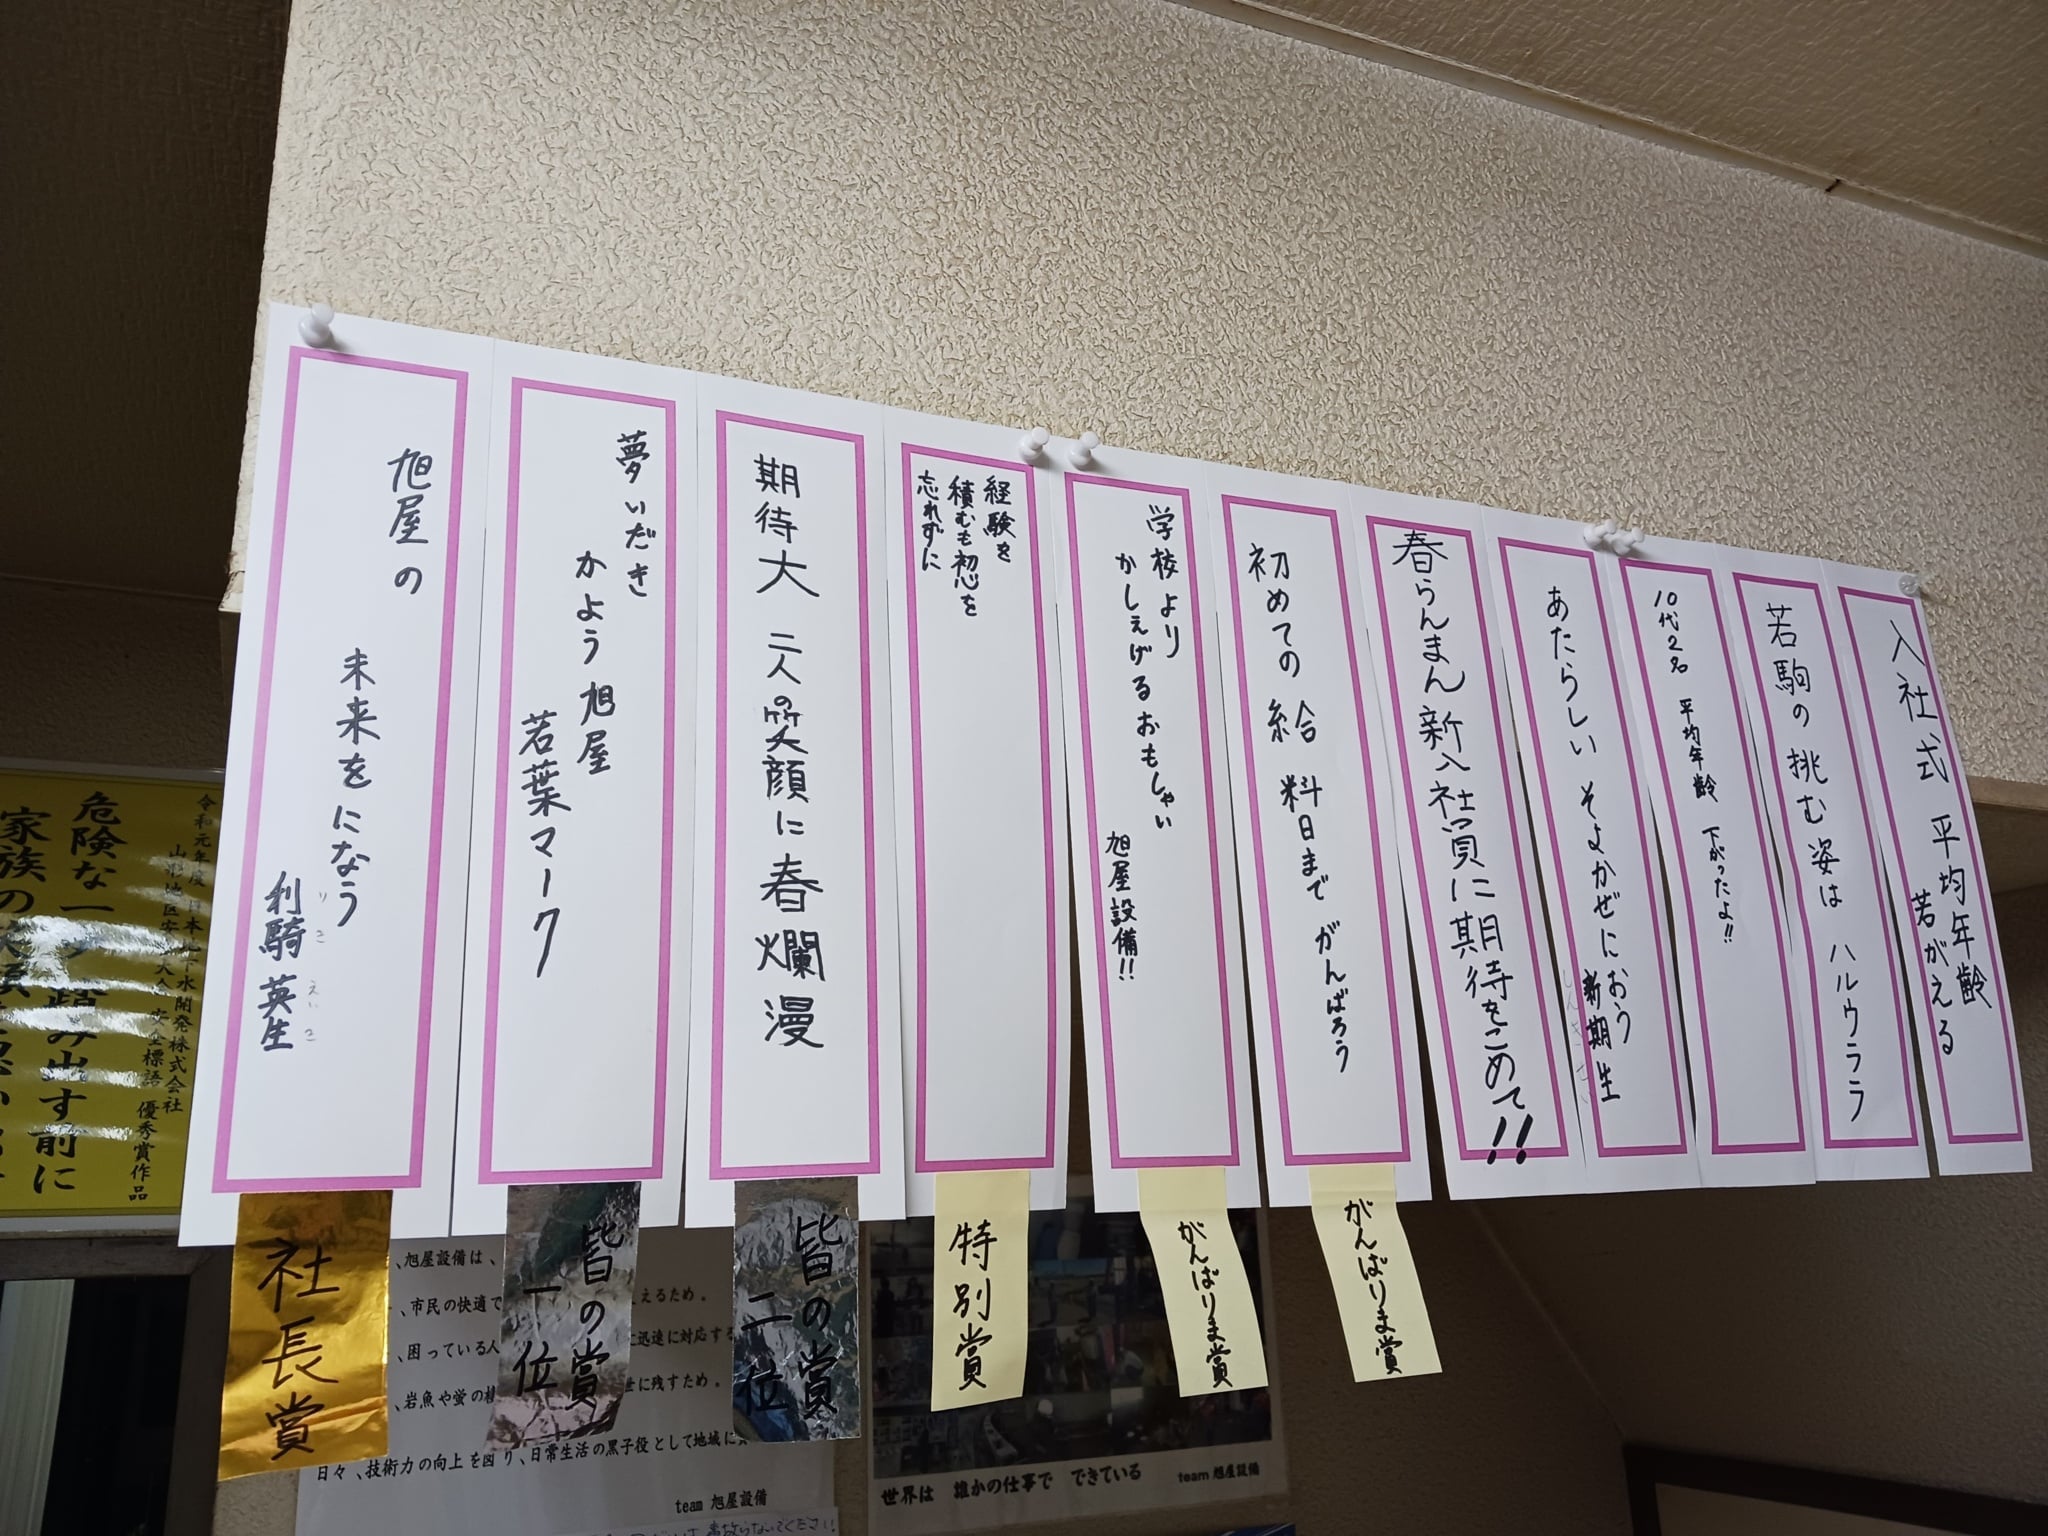 入社式 平均年齢
若がえる
若駒の 挑む姿は ハルウララ
10代2名 平均年齢 下がったよ!!
あたらしい そよかぜにおう
新期生
春らんまん 新入社員に期待をこめて!!
初めての 給料日まで がんばろう
がんばりま賞
学校より
かしぇげるおもしゃい
旭屋設備!!
がんばりま賞
経験を
積むも初心を
忘れずに
特別賞
期待大 二人の笑顔に春爛漫
皆の賞
二位
夢いだき
かよう旭屋
若葉マーク
皆の賞
一位
旭屋の
未来をになう
利騎 英生
りき えいき
社長賞
令和元年度
安全標語 優秀賞作品
危険な一
踏み出す前に
家族の
、旭屋設備は、
、市民の快適で
えるため。
、困っている人
に迅速に対応する
、岩魚や蛍の棲
世に残すため。
日々、技術力の向上を図り、日常生活の黒子役として地域に
team 旭屋設備
世界は 誰かの仕事で できている
team 旭屋設備